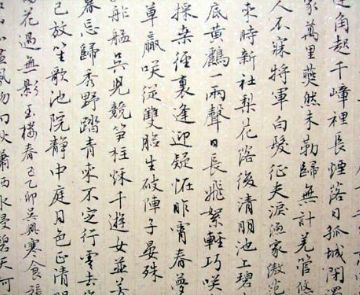 邊角起千嶂裡長煙落日孤城閉濁
家萬里燕然未勒歸無計羌管悠
人不寐將軍白髮征夫淚漁家傲范
來時新社梨花落後清明池上碧
底黃鸝一兩聲日長飛絮輕巧笑
採桑徑裏逢迎疑怪昨宵春夢
草贏笑從雙臉生破陣子晏殊
舴艋吳兒競笋柱秋千遊女並芳
暮忘歸秀野踏青來不定行雲去後
已放笙歌池院靜中庭月色正清明
花過無影玉樓春乙卯吳興寒食張
風物向秋瀟洒水浸碧天何